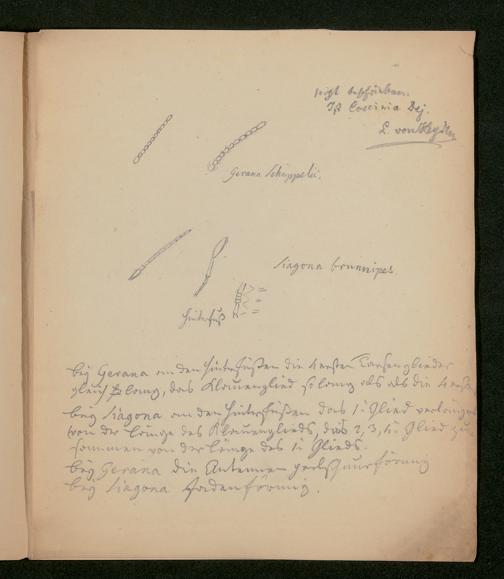 nicht beschrieben.
Ist Coscinia Dej.
L. von Heyden
Gerana Schüppelii.
Siagona brunnipes.
Hinterfuß
bey Gerana an den Hinterfüßen die 4 ersten Tarsenglieder
gleich lang, das Klauenglied so lang als die 4 ersten
bey Siagona an den Hinterfüßen das 1t Glied verlängert
von der Länge des Klauenglieds, das 2, 3, 4t Glied zu-
sammen von der Länge des 1t Glieds.
bey Gerana die Antennen perlschnurförmig
bey Siagona fadenförmig.